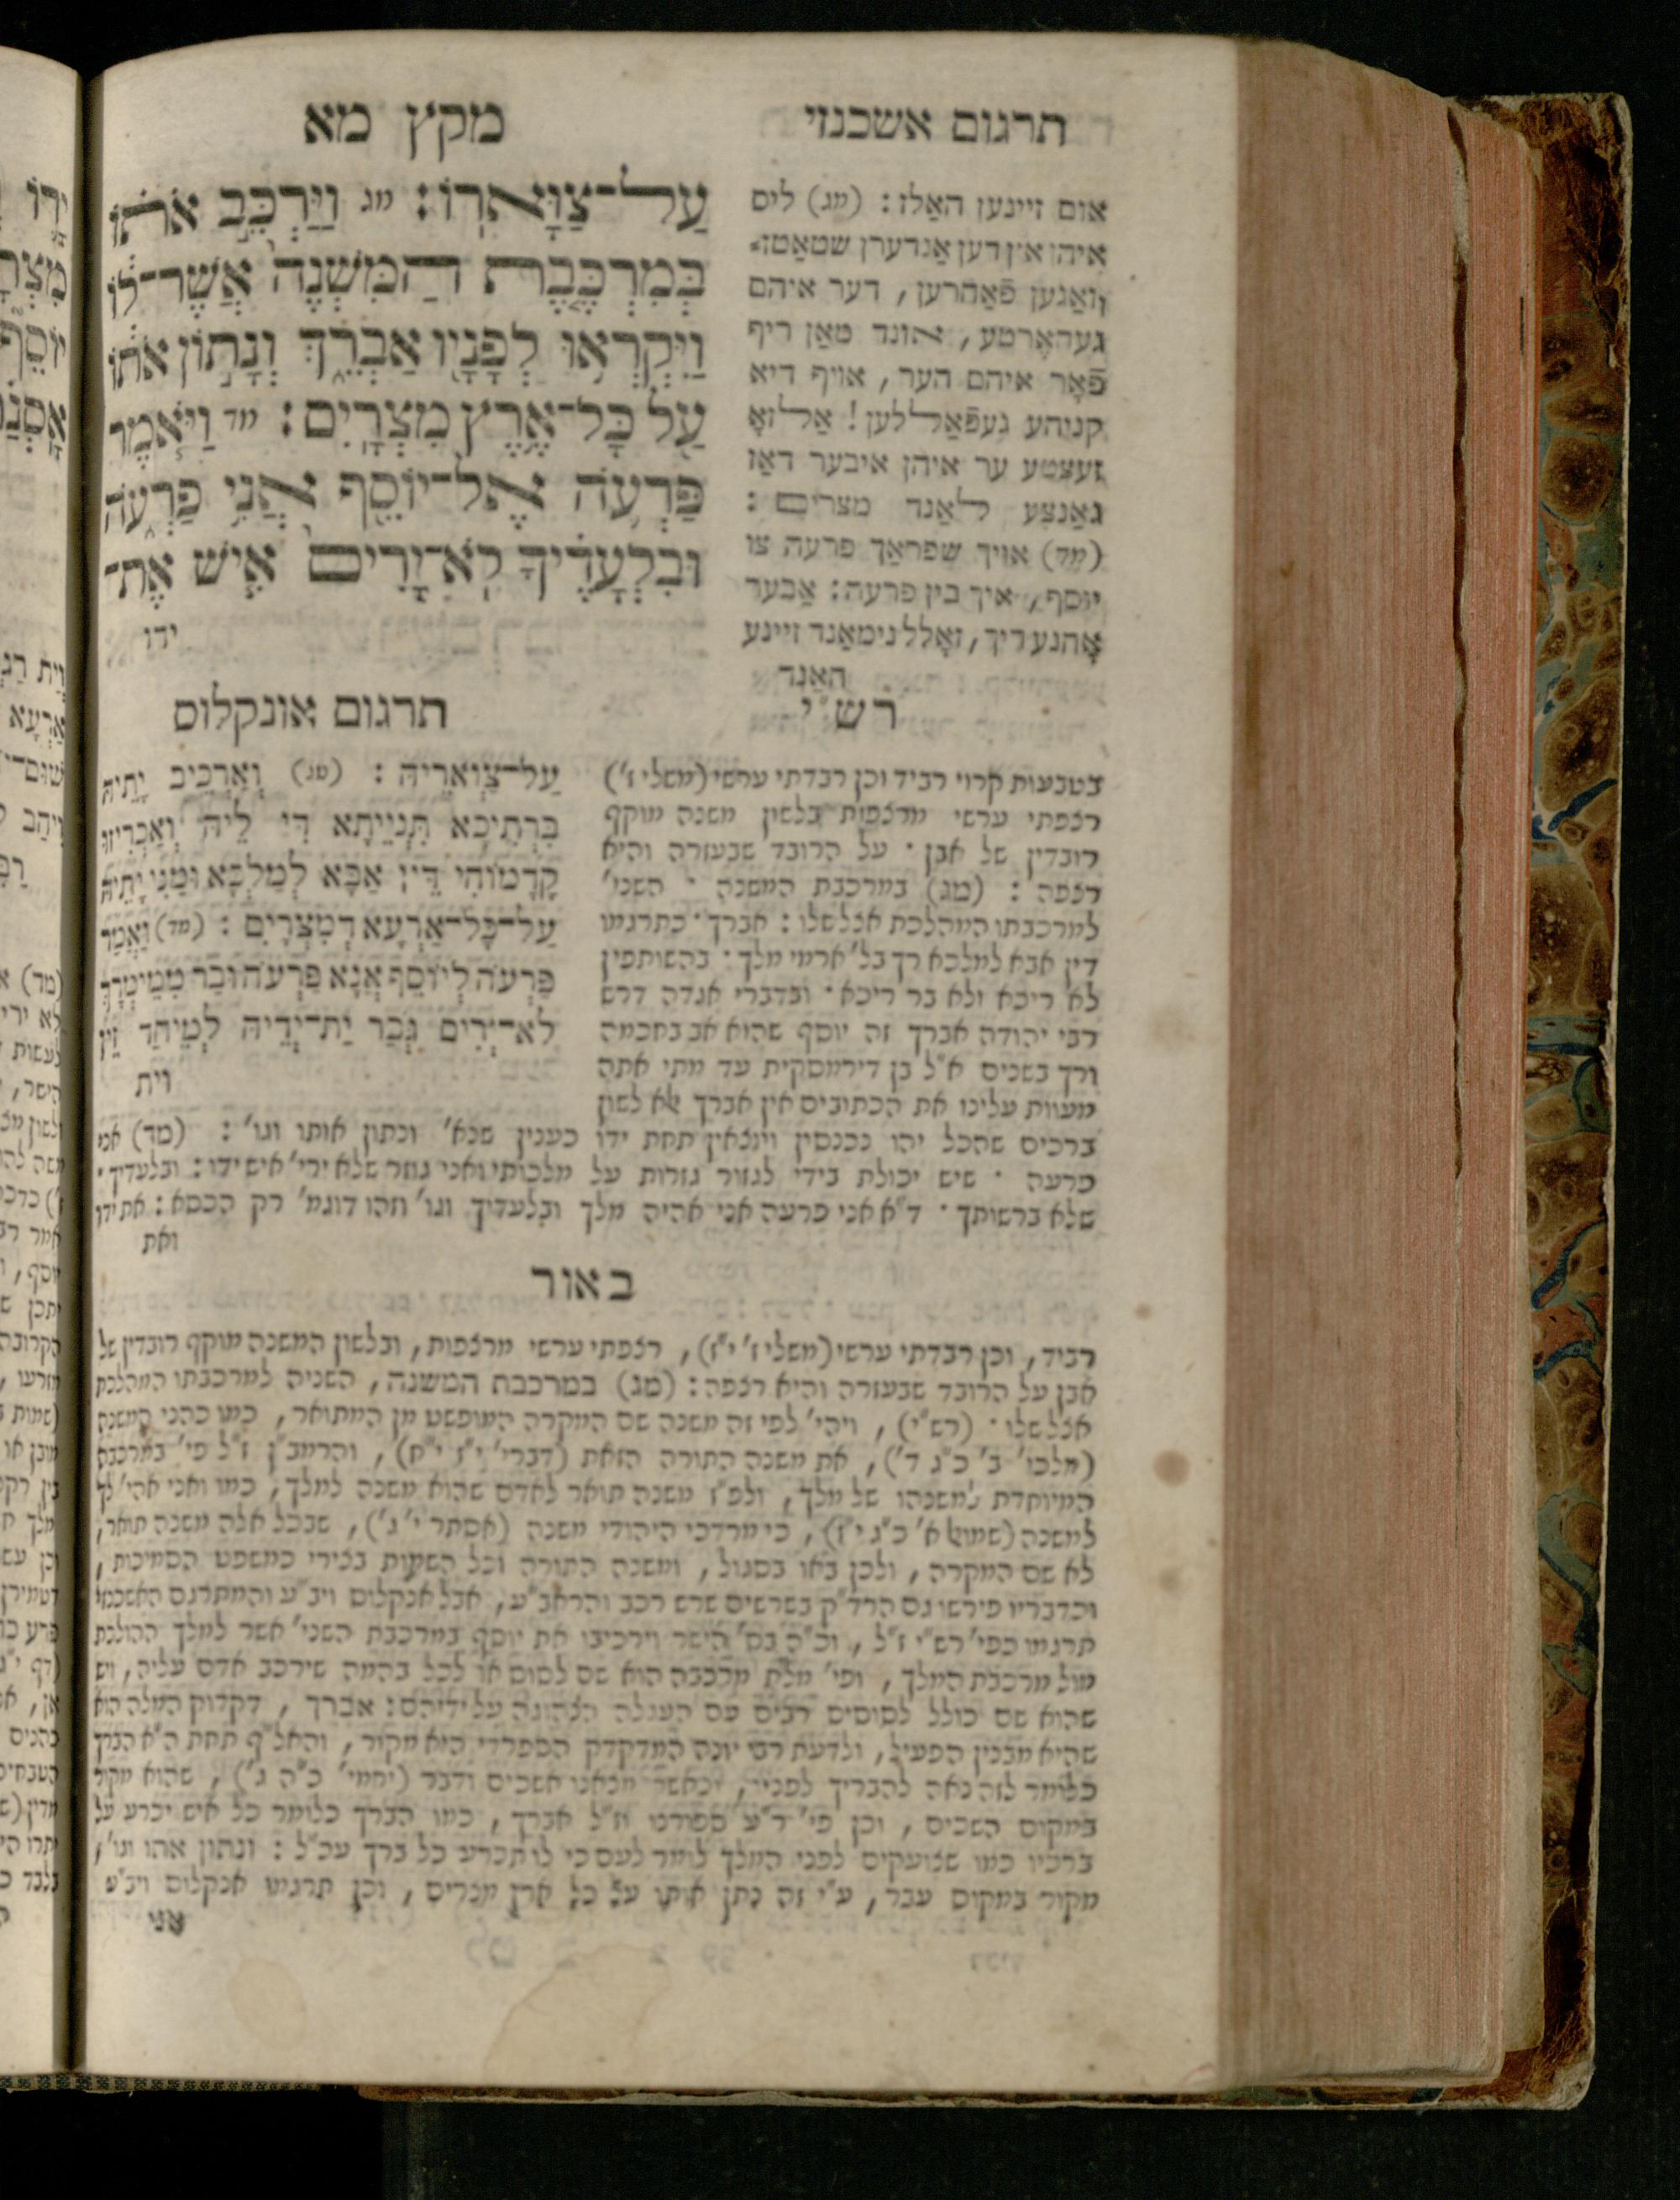 מקץ מא
תרגום אשכנזי
עַל־צַוָּארֽוֹ׃ מג וַיַּרְכֵּ֣ב אֹת֗וֹ
בְּמִרְכֶּ֤בֶת הַמִּשְׁנֶה֙ אֲשֶׁר־ל֔וֹ
וַיִּקְרְא֥וּ לְפָנָ֖יו אַבְרֵ֑ךְ וְנָת֣וֹן אֹת֔וֹ
עַ֖ל כָּל־אֶ֥רֶץ מִצְרָֽיִם׃ מד וַיֹּ֧אמֶר
פַּרְעֹ֛ה אֶל־יוֹסֵ֖ף אֲנִ֣י פַרְעֹ֑ה
וּבִלְעָדֶ֗יךָ לֹֽא־יָרִ֨ים אִ֧ישׁ אֶת־
ידו
אום זיינען האַלז: (מג) ליס
איהן אין דען אַנדערן שטאַטז־
וואַגען פֿאַהרען, דער איהם
געהאָרטע, אונד מאַן ריף
פֿאָר איהם הער, אויף דיא
קניהע געפֿאַללען! אַלזאָ
זעצטע ער איהן איבער דאַז
גאַנצע לאַנד מצרים:
(מד) אויך שפראַך פרעה צו
יוסף, איך בין פרעה: אַבער
אָהנע דיך, זאָלל נימאַנד זיינע
האַנד
תרגום אונקלוס
עַל־צַוְארֵיהּ: (מג) וְאַרְכֵּיב יָתֵיהּ
בִּרְתִיכָא תִּנְיֵיתָא דִּי לֵיהּ וְאַכְרִיזוּ
קָדָמוֹהִי דֵּין אַבָּא לְמַלְכָּא וּמַנִּי יָתֵיהּ
עַל־כָּל־אַרְעָא דְמִצְרָיִם: (מד) וַאֲמַר
פַּרְעֹה לְיוֹסֵף אֲנָא פַּרְעֹה וּבַר מִמֵּימְרָךְ
לא־יְרִים גְּבַר יַת־יְדֵיהּ לְמֵיחַד זֵין
וית
רש״י
בטבעות קרוי רביד וכן רבדתי ערשי (משלי ז')
רצפתי ערשי מרצפות בלשון משנה מוקף
רובדין של אבן · על הרובד שבעזרה והיא
רצפה: (מג) במרכבת המשנה · השני'
למרכבתו המהלכת אצל שלו: אברך · כתרגומו
דין אבא למלכא רך בל' ארמי מלך · בהשותפין
לא ריכא ולא בר ריכא · ובדברי אגדה דרש
רבי יהודה אברך זה יוסף שהוא אב בחכמה
ורך בשנים א״ל בן דורמסקית עד מתי אתה
מעוות עלינו את הכתובים אין אברך אלא לשון
ברכים שהכל יהו נכנסין ויוצאין תחת ידו כענין שנא' ונתון אותו וגו': (מד) אני
פרעה · שיש יכולת בידי לגזור גזרות על מלכותי ואני גוזר שלא ירי' איש ידו: ובלעדיך ·
שלא ברשותך · ד״א אני פרעה אני אהיה מלך ובלעדיך וגו' וזהו דוגמ' רק הכסא: את ידו
ואת
באור
רביד, וכן רבדתי ערשי (משלי ז' י״ז), רצפתי ערשי מרצפות, ובלשון המשנה מוקף רובדין של
אבן על הרובד שבעזרה והיא רצפה: (מג) במרכבת המשנה, השניה למרכבתו המהלכת
אצל שלו · (רש״י), ויהי' לפי זה משנה שם המקרה המופשט מן המתואר, כמו כהני המשנה
(מלכי' ב' כ״ג ד'), את משנה התורה הזאת (דברי' י״ז י״ח), והרמב״ן ז״ל פי' במרכבה
המיוחדת למשנהו של מלך, ולפ״ז משנה תואר לאדם שהוא משנה למלך, כמו ואני אהי' לך
למשנה (שמואל א' כ״ג י״ז), כי מרדכי היהודי משנה (אסתר י' ג'), שבכל אלה משנה תואר,
לא שם המקרה, ולכן באו בסגול, ומשנה התורה וכל השמות בצירי כמשפט הסמיכות,
וכדבריו פירשו גם הרד״ק בשרשים שרש רכב והראב״ע, אבל אנקלוס ויב״ע והמתרגם האשכנזי
תרגמו כפי' רש״י ז״ל, וכ״ה בס' הישר וירכיבו את יוסף במרכבת השני' אשר למלך ההולכת
מול מרכבת המלך, ופי' מלת מרכבה הוא שם לסוס או לכל בהמה שירכב אדם עליה, ויש
שהוא שם כולל לסוסים רבים עם העגלה הנהוגה על ידיהם: אברך, דקדוק המלה הוא
שהיא מבנין הפעיל, ולדעת רבי יונה המדקדק הספרדי הוא מקור, והאל״ף תחת ה״א הברך
כלומר לזה נאה להבריך לפניו, וכאשר מצאנו אשכים ודבר (ירמי' כ״ה ג'), שהוא מקור
במקום השכים, וכן פי' ר״ע ספורנו וז״ל אברך, כמו הברך כלומר כל איש יכרע על
ברכיו כמו שצועקים לפני המלך לומר לעם כי לו תכרע כל ברך עכ״ל: ונתון אתו וגו',
מקור במקום עבר, ע״י זה נתן אותו על כל ארץ מצרים, וכן תרגמו אנקלוס ויב״ע
אני